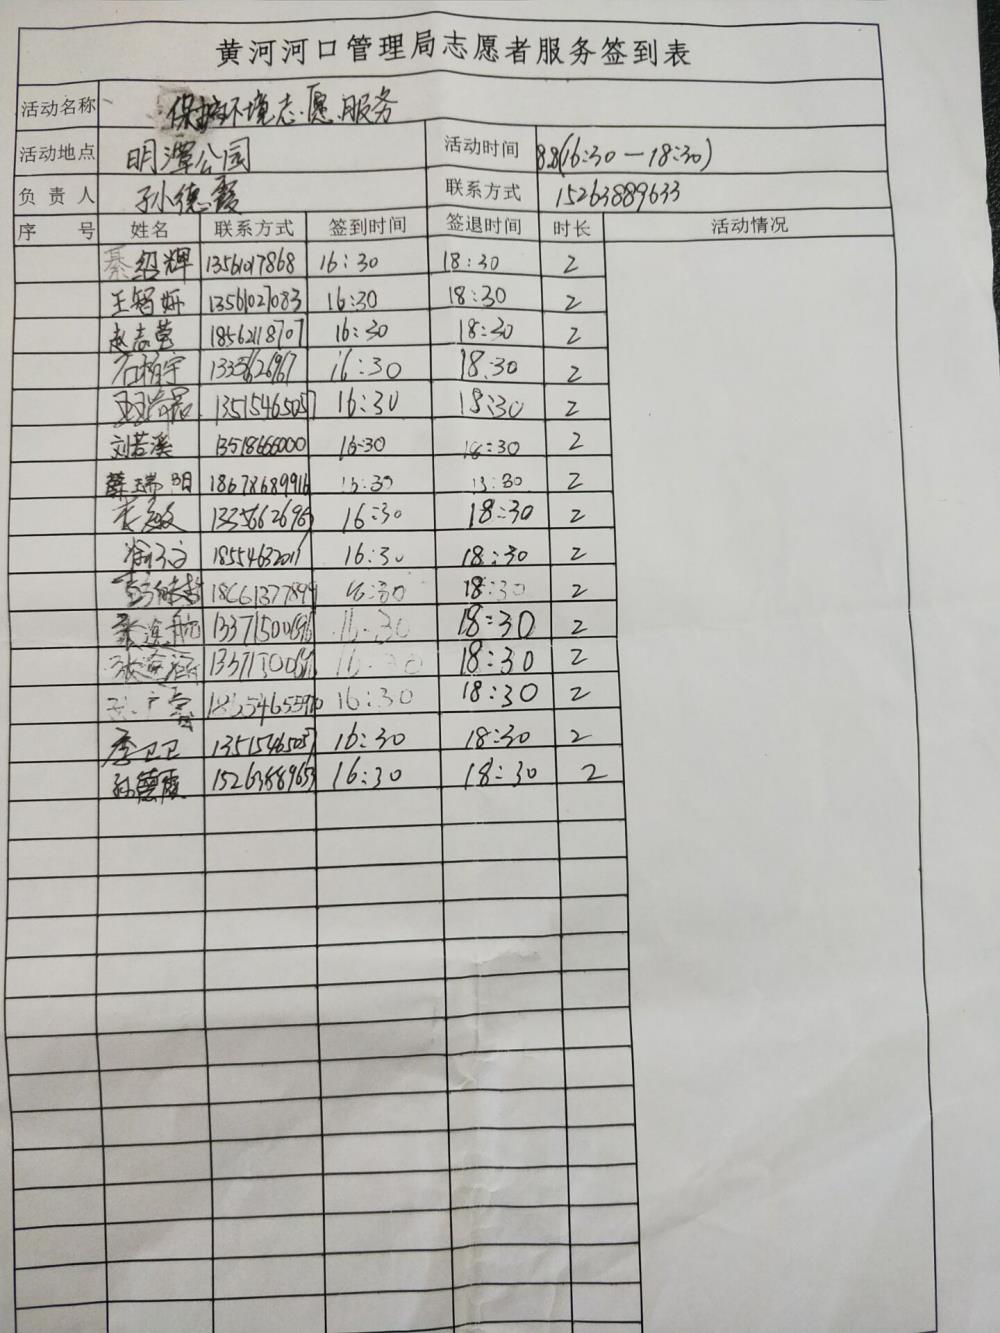 黄河河口管理局志愿者服务签到表
活动名称 保护环境志愿服务
活动地点 明潭公园 活动时间 8.8(16:30—18:30)
负责人 孙德霞 联系方式 15263889633
序号 姓名 联系方式 签到时间 签退时间 时长 活动情况
綦绍辉 13561017868 16:30 18:30 2
王智妍 13561027083 16:30 18:30 2
赵志莹 18562118707 16:30 18:30 2
石柏宇 16:30 18:30 2
13515465057 16:30 18:30 2
刘若溪 13518666000 16:30 18:30 2
薛瑞阳 18678689916 2
16:30 18:30 2
18554632011 16:30 18:30 2
18661377899 16:30 18:30 2
张滨航 16:30 18:30 2
16:30 18:30 2
16:30 18:30 2
季卫卫 13515465057 16:30 18:30 2
孙德霞 16:30 18:30 2